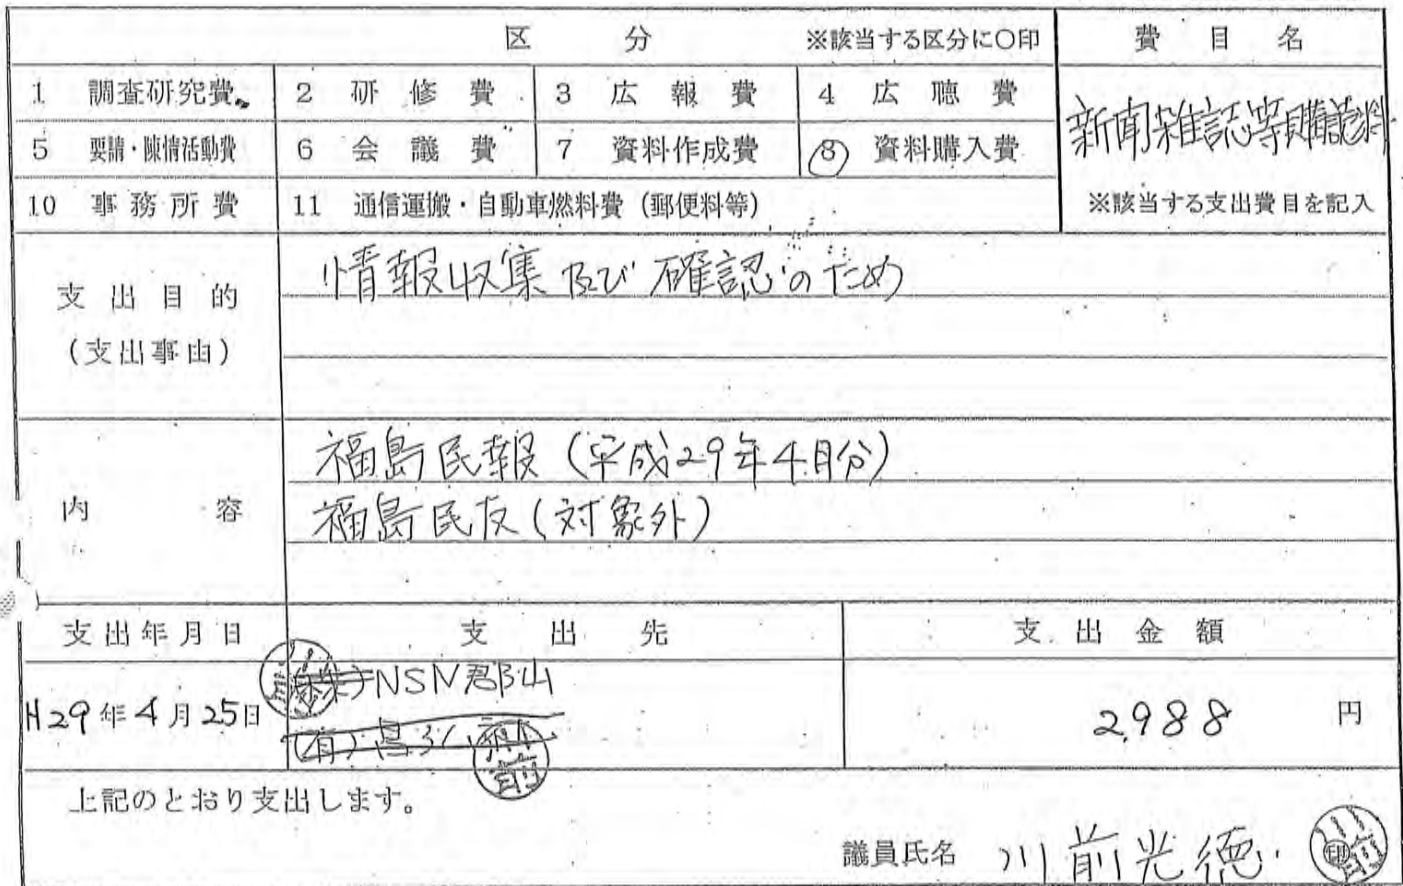 区 分 ※該当する区分に○印 費目名
1 調査研究費 2 研修費 3 広報費 4 広聴費
新聞雑誌等購読料
5 要請・陳情活動費 6 会議費 7 資料作成費 8 資料購入費
10 事務所費 11 通信運搬・自動車燃料費(郵便料等) ※該当する支出費目を記入
支出目的
(支出事由)
情報収集及び確認のため
内容
福島民報(平成29年4月分)
福島民友(対象外)
支出年月日 支出先 支出金額
NSN郡山
H29年4月25日 2,988 円
(有)
上記のとおり支出します。
議員氏名 川前光徳 印